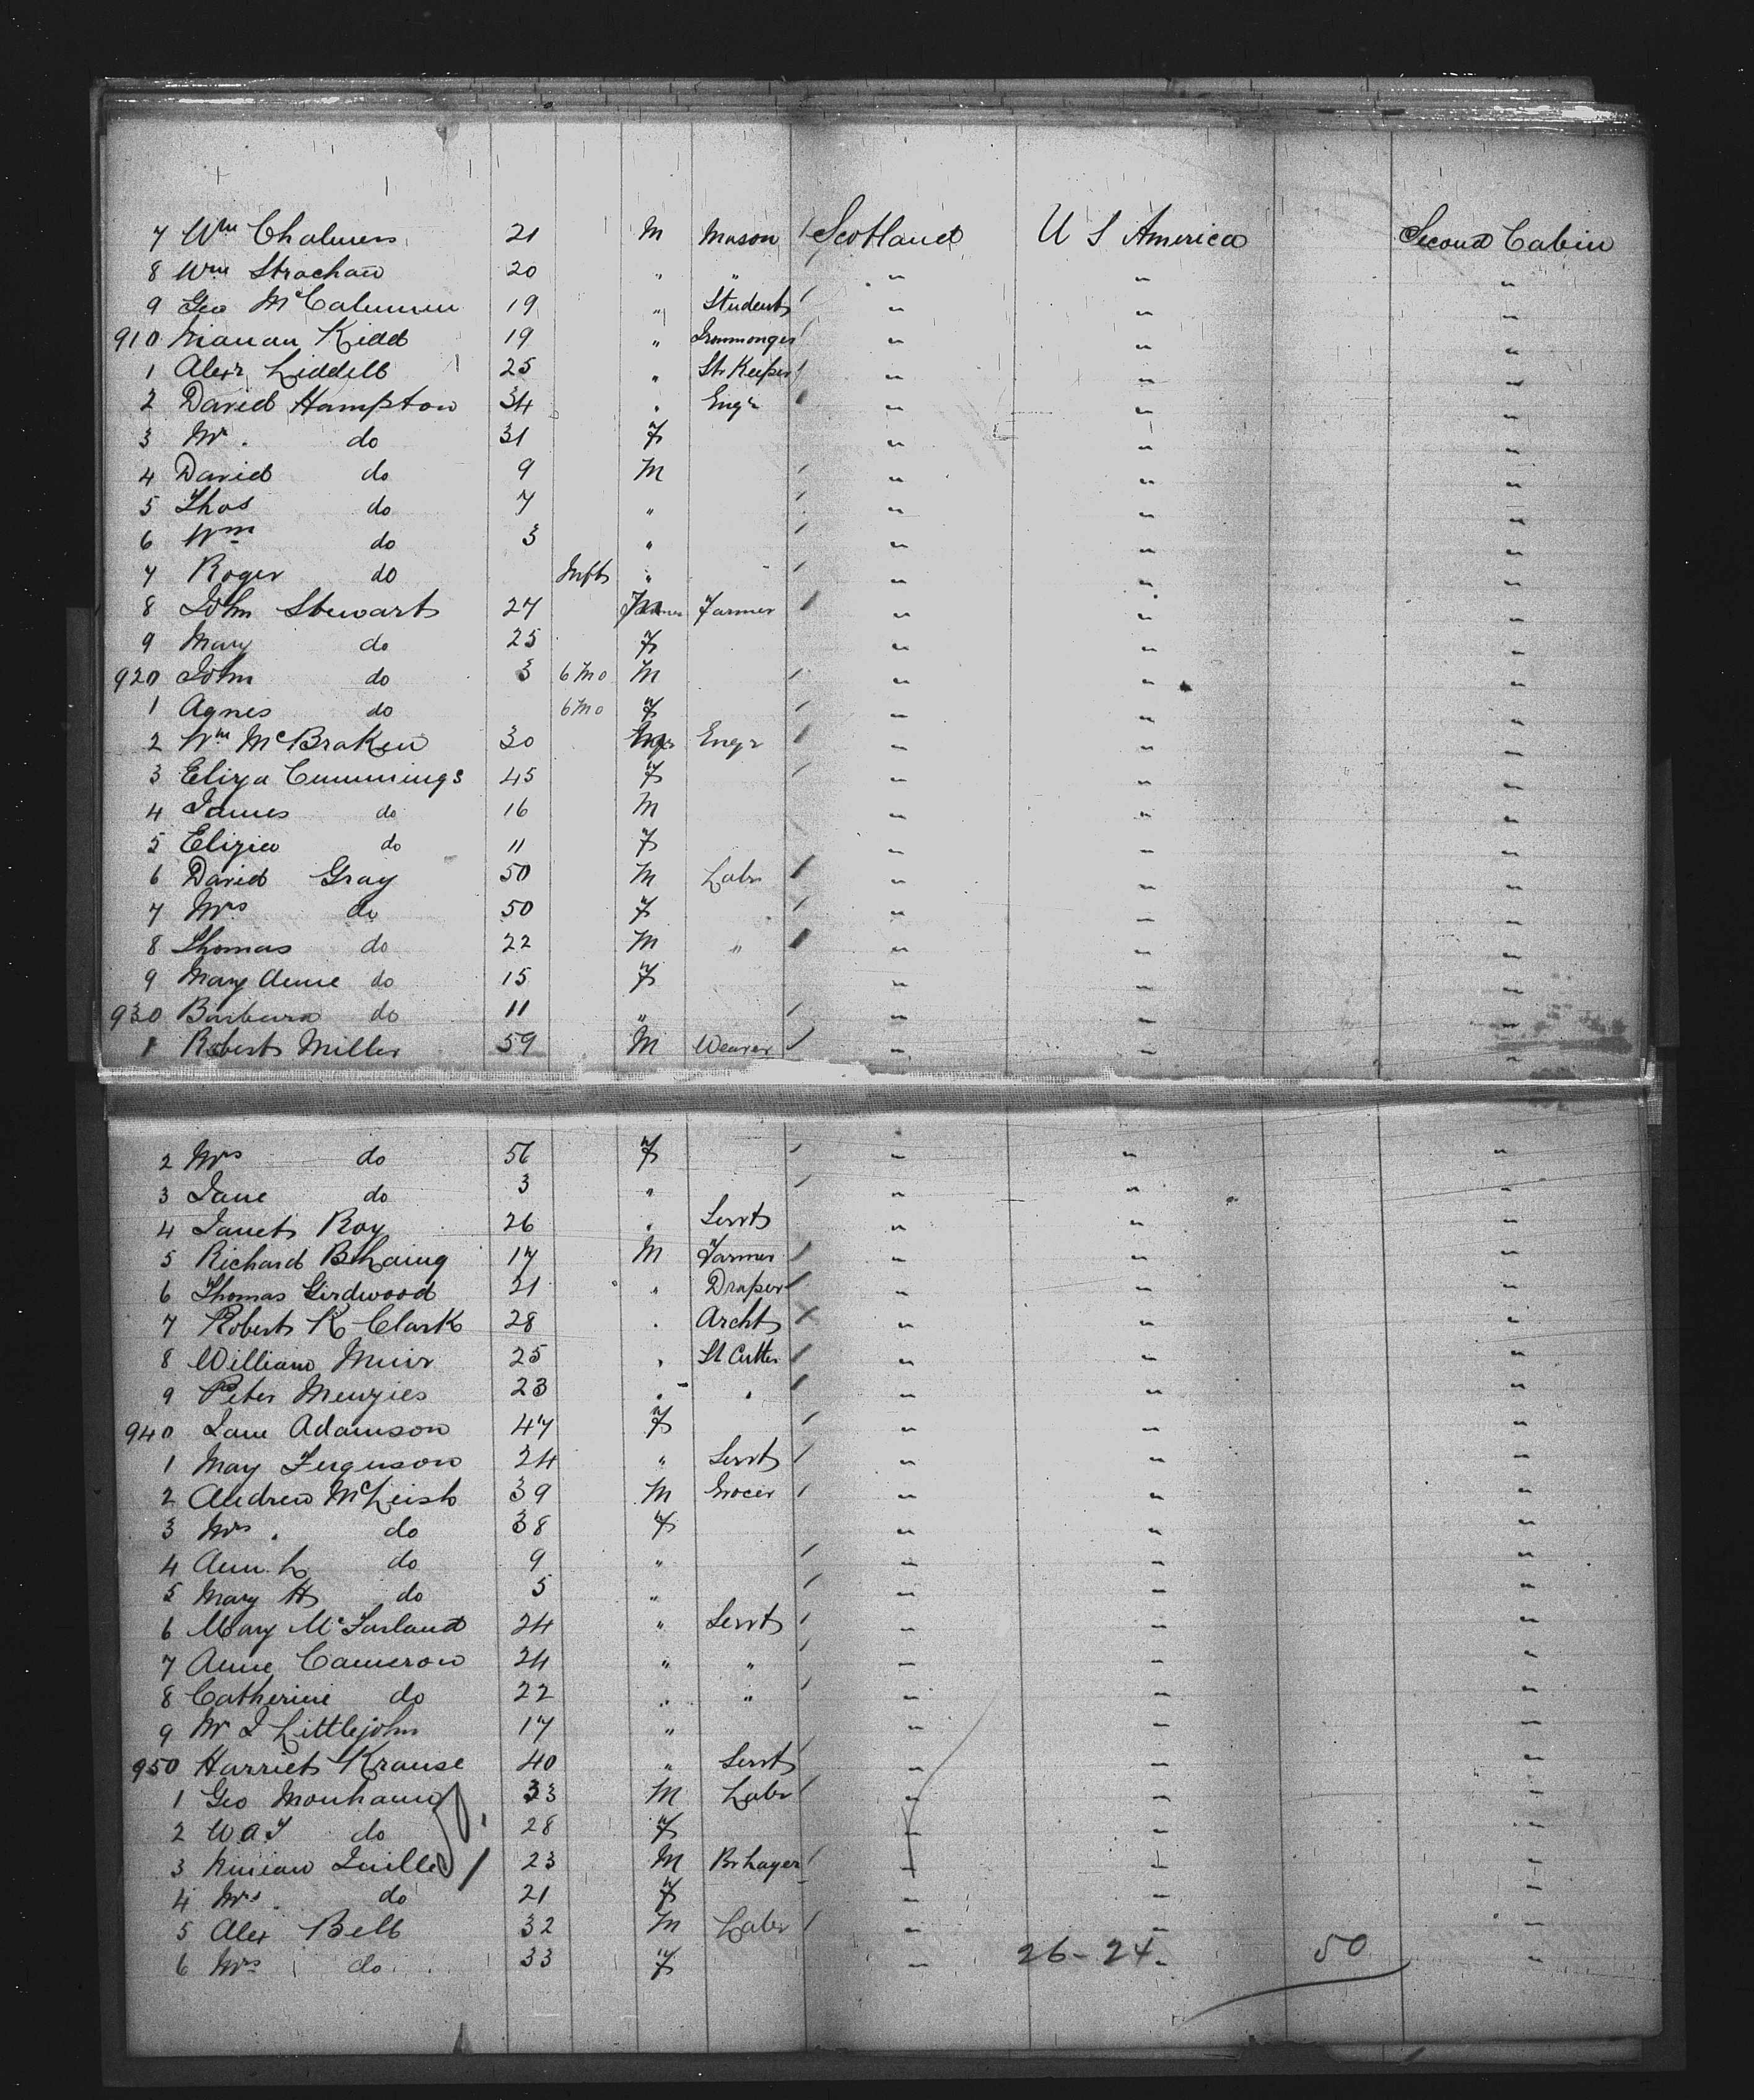 7 Wm Chalmers 21 M Mason / Scotland U S America Second Cabin
8 Wm Strachan 20 " " " " "
9 Geo McCalumen 19 " Student / " " "
910 Ninian Kidd 19 " Ironmonger / " " "
1 Alexr Liddell 25 " St Keeper / " " "
2 David Hampton 34 " Engr / " " "
3 Mrs. do 31 F " " "
4 David do 9 M / " " "
5 Thos do 7 " / " " "
6 Wm do 3 " / " " "
7 Roger do Inft " / " " "
8 John Stewart 27 M Farmer / " " "
9 Mary do 25 F " " "
920 John do 3 6 Mo M / " " "
1 Agnes do 6 Mo F / " " "
2 Wm McBraken 30 Engr / " " "
3 Eliza Cummings 45 F / " " "
4 James do 16 M " " "
5 Eliza do 11 F " " "
6 David Gray 50 M Labr / " " "
7 Mrs do 50 F / " " "
8 Thomas do 22 M " / " " "
9 Mary Anne do 15 F " " "
930 Barbara do 11 " / " " "
1 Robert Miller 59 M Weaver / " " "
2 Mrs do 56 F / " " "
3 Jane do 3 " / " " "
4 Janet Roy 26 " Servt " " "
5 Richard B Laing 17 M Farmer / " " "
6 Thomas Girdwood 21 " Draper / " " "
7 Robert K Clark 28 " Archt X " " "
8 William Muir 25 " St Cutter / " " "
9 Peter Menzies 23 " " / " " "
940 Jane Adamson 47 F / " " "
1 May Ferguson 24 " Servt / " " "
2 Andrew McLeish 39 M Grocer / " " "
3 Mrs. do 38 F " " "
4 Ann. L do 9 " / " " "
5 Mary H do 5 " / " " "
6 Mary McFarland 24 " Servt / " " "
7 Anne Cameron 24 " " / " " "
8 Catherine do 22 " " / " " "
9 W J Littlejohn 17 " " " "
950 Harriet Krause 40 " Servt / " " "
1 Geo 33 M Labr / " " "
2 W A J do 28 F " " "
3 Ninian 23 M Br Layer / " " "
4 Mrs. do 21 F " " "
5 Alex Bell 32 M Labr / " " "
6 Mrs do 33 F " 26 - 24 " 50 "